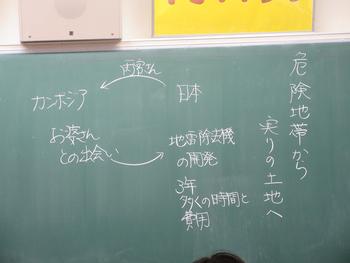 危険地帯から
実りの土地へ
日本
雨宮さん
カンボジア
お婆さん
との出会い
地雷除去機
の開発
3年
多くの時間と
費用